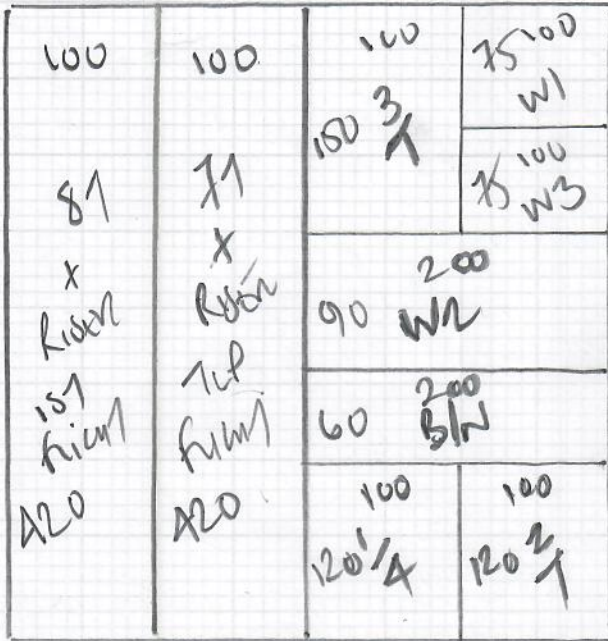 100
8T
x
Riser
1st
Flight
420
100
7T
x
Riser
Top
Flight
420
100
150 3/T
75 100
W1
75 100
W3
200
90 W2
200
60 B/N
100
120 1/T
100
120 2/T